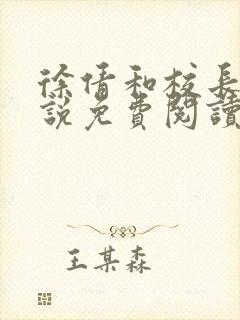 徐倩和校長
說免費閱讀
王某森